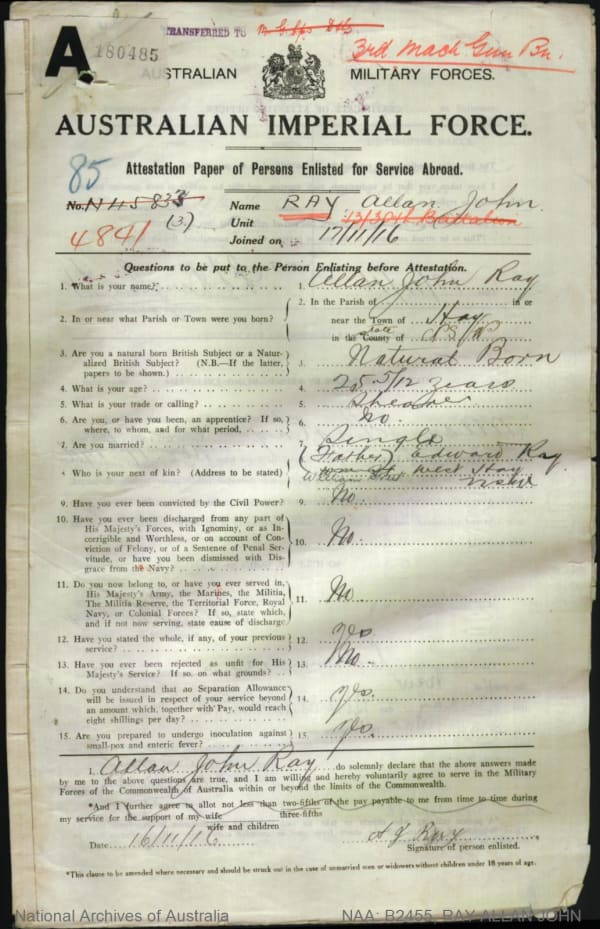 TRANSFERRED TO
3rd Mach Gun Bn.
A.
180485
AUSTRALIAN MILITARY FORCES.
AUSTRALIAN IMPERIAL FORCE.
85
Attestation Paper of Persons Enlisted for Service Abroad.
No. N115833 Name RAY Allan John.
4841 (3.) Unit 13/30th Battalion
Joined on 17/11/16
Questions to be put to the Person Enlisting before Attestation.
1. What is your name? 1. Allan John Ray
2. In or near what Parish or Town were you born? 2. In the Parish of in or
near the Town of Hay
in the State County of N.S.W
3. Are you a natural born British Subject or a Natur-
alized British Subject? (N.B.—If the latter,
papers to be shown.) 3. Natural Born
4. What is your age? 4. 25 5/12 years
5. What is your trade or calling? 5. Shearer
6. Are you, or have you been, an apprentice? If so,
where, to whom, and for what period, 6. No.
7. Are you married? 7. Single
8 Who is your next of kin? (Address to be stated) 8. (Father) Edward Ray
William Street West Hay
NSW
9. Have you ever been convicted by the Civil Power? 9. No.
10. Have you ever been discharged from any part of
His Majesty's Forces, with Ignominy, or as In-
corrigible and Worthless, or on account of Con-
viction of Felony, or of a Sentence of Penal Ser-
vitude, or have you been dismissed with Dis-
grace from the Navy? 10. No.
11. Do you now belong to, or have you ever served in,
His Majesty's Army, the Marines, the Militia,
The Militia Reserve, the Territorial Force, Royal
Navy, or Colonial Forces? If so, state which,
and if not now serving, state cause of discharge 11. No
12. Have you stated the whole, if any, of your previous
service? 12. yes
13. Have you ever been rejected as unfit for His
Majesty's Service? If so, on what grounds? 13. No.
14. Do you understand that no Separation Allowance
will be issued in respect of your service beyond
an amount which, together with Pay, would reach
eight shillings per day? 14. yes.
15. Are you prepared to undergo inoculation against
small-pox and enteric fever? 15. yes.
I, Allan John Ray do solemnly declare that the above answers made
by me to the above questions are true, and I am willing and hereby voluntarily agree to serve in the Military
Forces of the Commonwealth of Australia within or beyond the limits of the Commonwealth.
*And I further agree to allot not less than two-fifths of the pay payable to me from time to time during
three-fifths
my service for the support of my wife
wife and children
Date 16/11/16 A J Ray
Signature of person enlisted.
*This clause to be amended where necessary and should be struck out in the case of unmarried men or widowers without children under 18 years of age.
National Archives of Australia NAA: B2455, RAY ALLAN JOHN